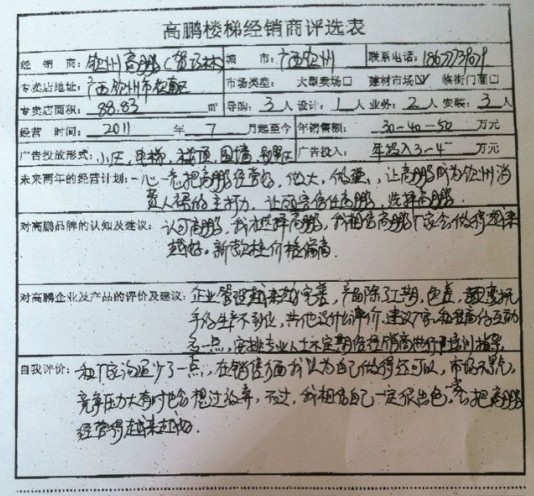 高鹏楼梯经销商评选表
经 销 商：钦州高鹏（贺 林） 城 市：广西钦州 联系电话：
专卖店地址：广西钦州市钦南区 市场类型： 大型卖场□ 建材市场☑ 临街门面□
专卖店面积： 88.83 ㎡ 导购：3人 设计：1人 业务：2人 安装：3人
经营 时间： 2011 年 7 月起至今 年销售额： 30-40-50 万元
广告投放形式：小区，电梯，楼顶，围墙， 广告投入： 年投入3-4 万元
未来两年的经营计划：一心一意把高鹏经营好，做大，做 ，让高鹏成为钦州消
费人 的主打 ，让 信任高鹏，选择高鹏.
对高鹏品牌的认知及建议： 认可高鹏，我才选择高鹏，我相信高鹏厂家会做得越来
越好。新款 价格偏高.
对高鹏企业及产品的评价及建议：企业管理越来越完善，产品除了工期，色差，
生产不到位，其他没什么评价.建议厂家和经销商互动
多一点，安排专业人士不定期给经销商进行培训指导.
自我评价： 和厂家沟通少了一点，在销售方面我认为自己做得还可以，市场不景气，
竞争压力大有时也会想过放弃，不过，我相信自己一定很出色，会把高鹏
经营得越来越好.